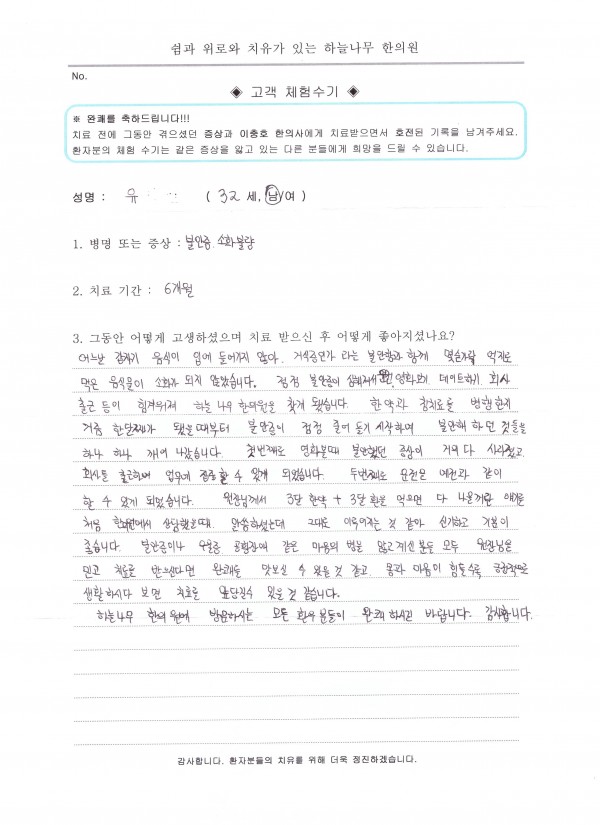 쉼과 위로와 치유가 있는 하늘나무 한의원
No.
◈ 고객 체험수기 ◈
※ 완쾌를 축하드립니다!!!
치료 전에 그동안 겪으셨던 증상과 이충호 한의사에게 치료받으면서 호전된 기록을 남겨주세요.
환자분의 체험 수기는 같은 증상을 앓고 있는 다른 분들에게 희망을 드릴 수 있습니다.
성명 : 유 ( 32 세, 남/여 )
1. 병명 또는 증상 : 불안증. 소화불량
2. 치료 기간 : 6개월
3. 그동안 어떻게 고생하셨으며 치료 받으신 후 어떻게 좋아지셨나요?
어느날 갑자기 음식이 입에 들어가지 않다. 거식증인가 라는 불안함과 함께 몇숟가락 억지로
먹은 음식물이 소화가 되지 않았습니다. 점점 불안증이 심해져서 영화보기 데이트하기. 회사
출근 등이 힘겨워져 하늘나무 한의원을 찾게 됐습니다. 한약과 침치료를 병행한지
거즘 한달째가 됐을때부터 불안증이 점점 줄어 들기 시작하여 불안해 하던 것들을
하나 하나 깨어 나갔습니다. 첫번째로 영화볼때 불안했던 증상이 거의 다 사라졌고.
회사를 출근하여 업무에 집중할 수 있게 되었습니다. 두번째로 운전을 예전과 같이
할 수 있게 되었습니다. 원장님께서 3달 한약 + 3달 환을 먹으면 다 나을꺼란 얘기를
처음 한의원에서 상담했을때. 말씀하셨는데 그대로 이루어지는 것 같아 신기하고 기분이
좋습니다. 불안증이나 우울증 공황장애 같은 마음의 병을 앓고계신 분들 모두 원장님을
믿고 치료를 받으신다면 완쾌를 맛보실 수 있을 것 같고. 몸과 마음이 힘들수록 긍정적으로
생활하시다 보면 치료를 앞당길수 있을 것 같습니다.
하늘나무 한의원에 방문하시는 모든 환우분들이 완쾌하시길 바랍니다. 감사합니다.
감사합니다. 환자분들의 치유를 위해 더욱 정진하겠습니다.